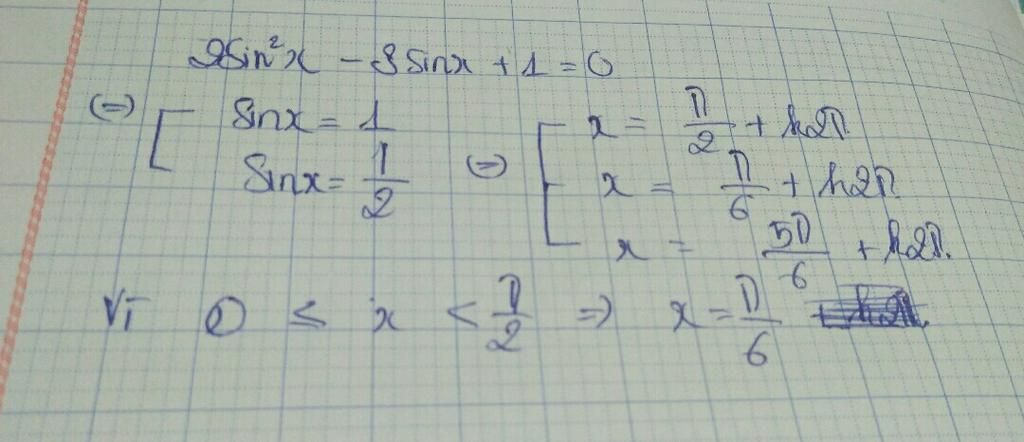 2sin²x - 3sinx + 1 = 0
(=) [ sinx = 1
sinx = 1/2 (=) [ x = π/2 + k2π
x = π/6 + k2π
x = 5π/6 + k2π.
Vì 0 ≤ x < π/2 => x = π/6